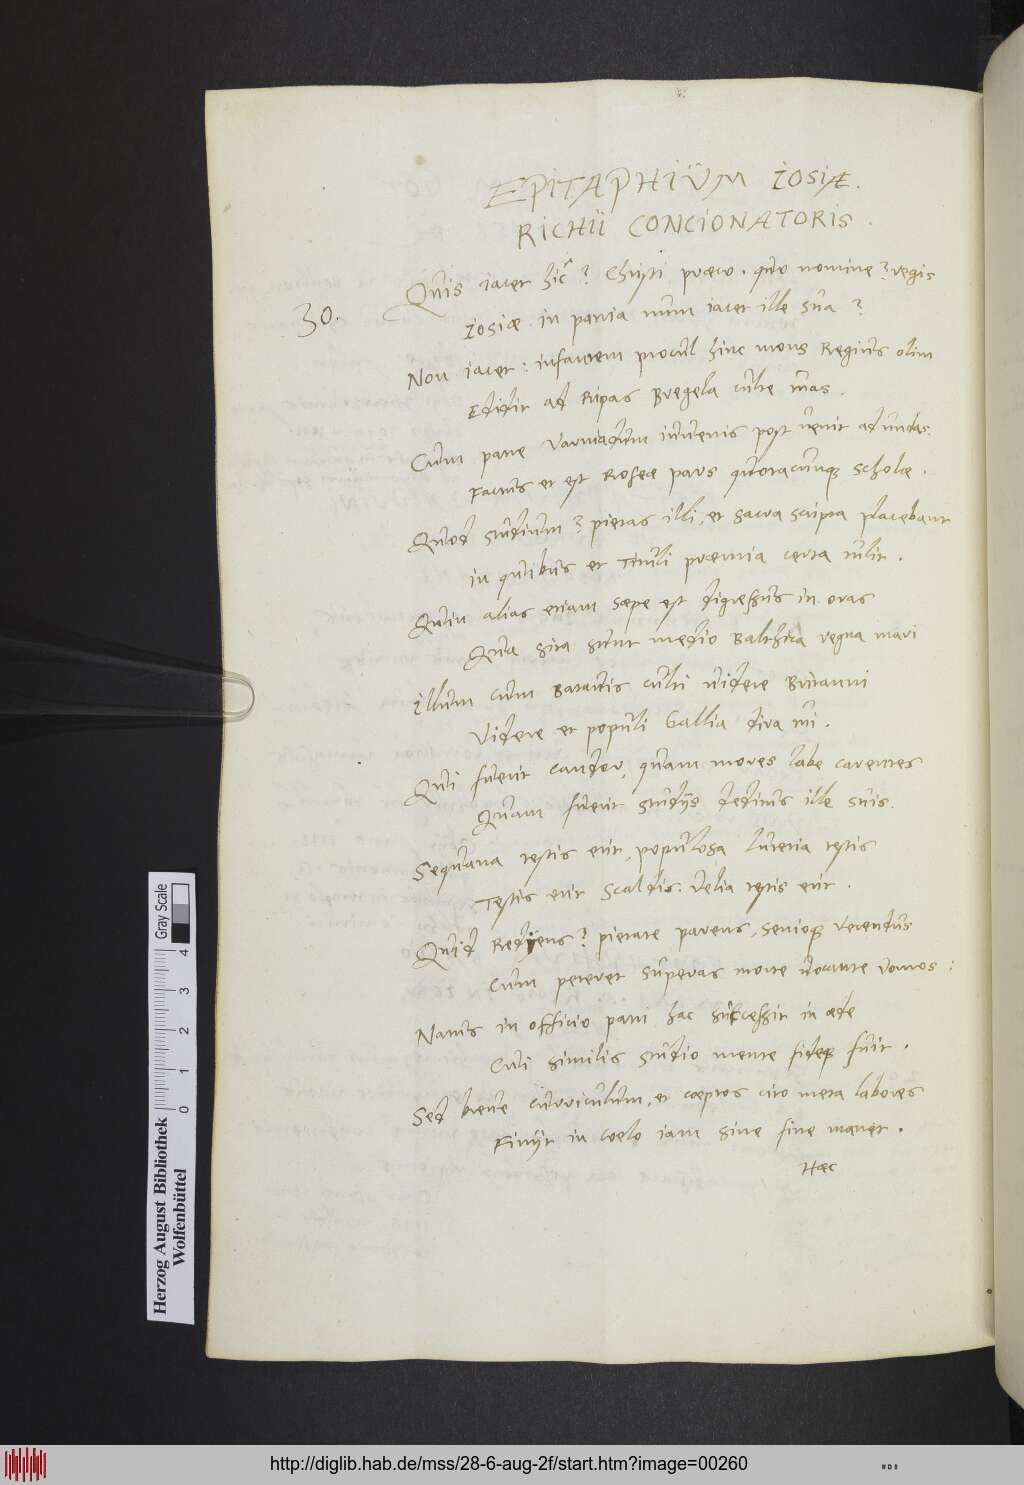 EPITAPHIUM IOSIÆ
RICHII CONCIONATORIS.
30.
Quis iacet hic? Christi præco. quo nomine? regis
Iosiæ. in patria num iacet ille sua?
Non iacet: infantem procul hinc mons Regius olim
Edidit ad Ripas Bregela culte tuas.
Cum patre Varniadum iuvenis post venit ad undas.
Factus et est Roseæ pars quotacunque scholæ.
Quod studium? pietas illi, et sacra scripta placebant
in quibus et tituli præmia certa tulit.
Quin alias etiam sæpe est digressus in oras
Qua sita sunt medio Balthica regna mari
Illum cum Batavis culti videre Britanni
Videre et populi Gallia diva tui.
Qui fuerit candor, quam mores labe carentes
Quam fuerit studijs deditus ille suis.
Sequana testis erit, populosa lutetia testis
Testis erit Scaldis: Velia testis erit.
Quid Redijens? pietate parens, senioque verendus
Cum peteret superas morte vocante domos:
Natus in officio patri hac successit in æde
Cui similis studio mente fideque fuit.
Sed breve curriculum, et cæptos cito meta labores
Finijt in coelo iam sine fine manet.
Hæc
Herzog August Bibliothek
Wolfenbüttel
0 1 2 3 4
Gray Scale
http://diglib.hab.de/mss/28-6-aug-2f/start.htm?image=00260